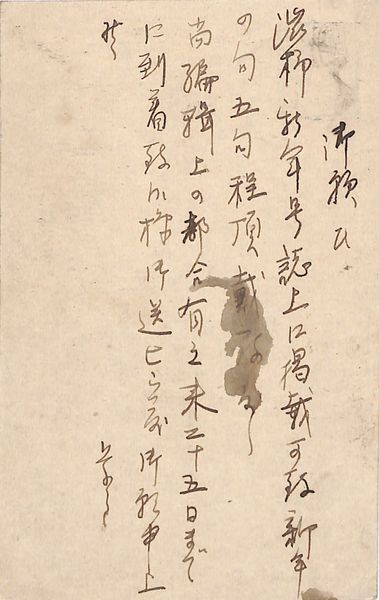 御願ひ
渋柿新年号誌上に掲載可致新年
の句五句程頂戴
尚編輯上の都合有之来二十五日まで
に到着致候様御送被下度御願申上
候
草々